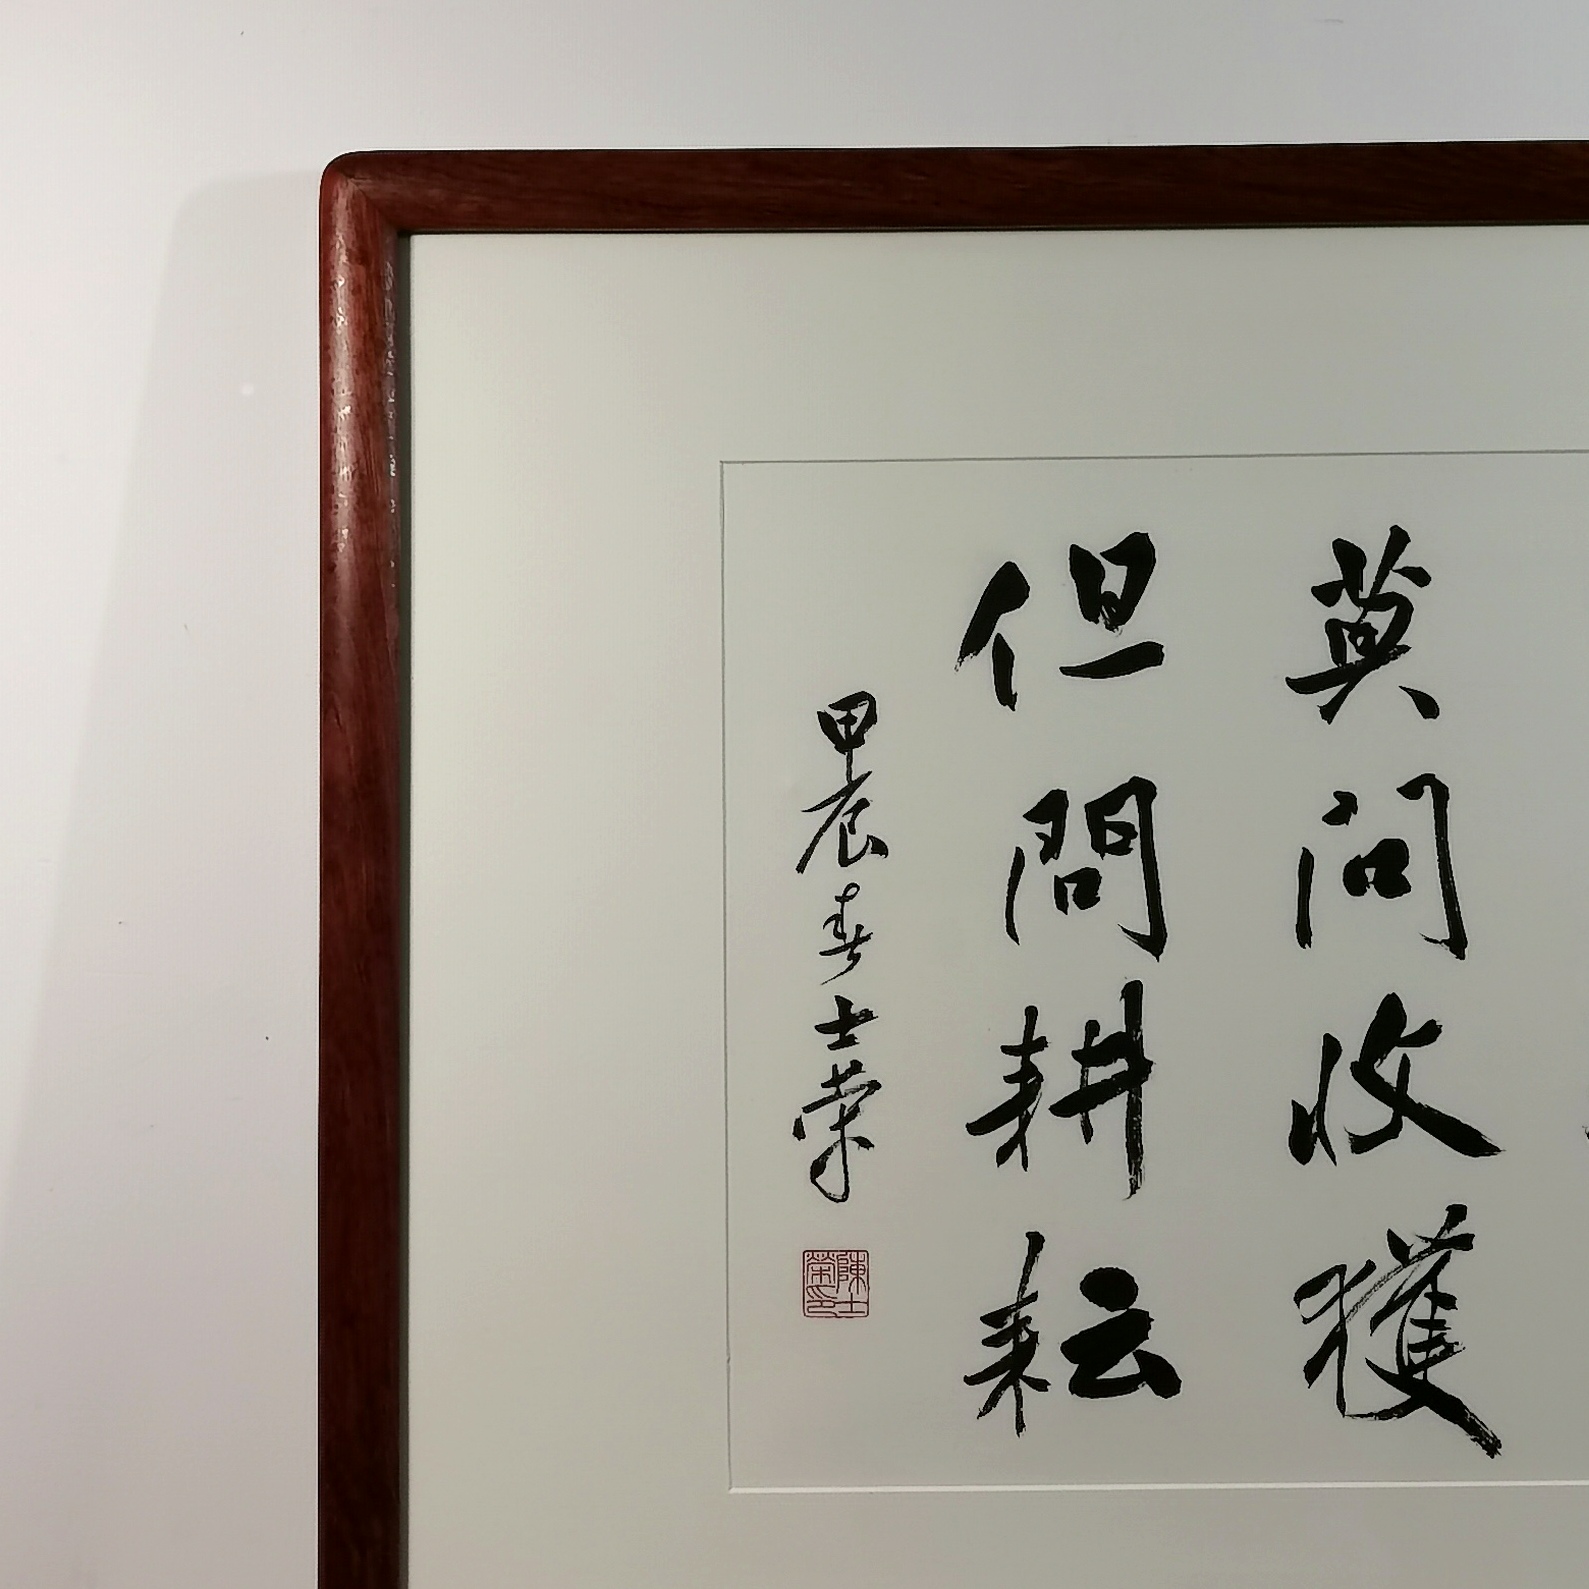 莫问收獲
但問耕耘
甲辰春士荣
陳士榮印